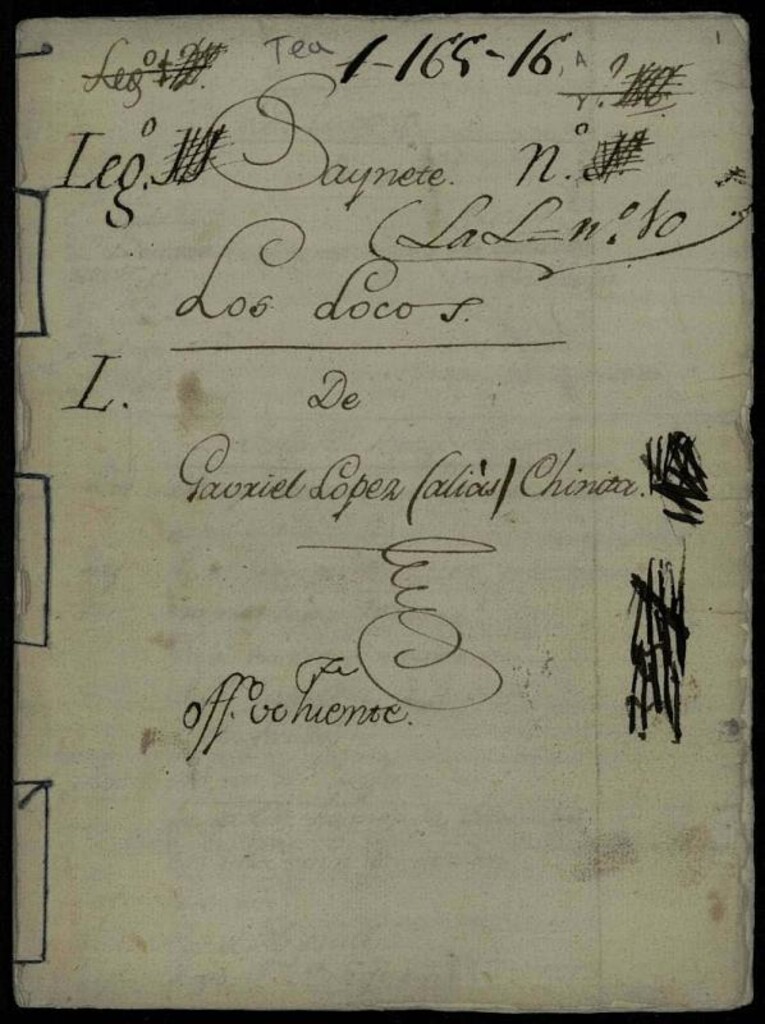 Leg.º
Tea 1-165-16, A
1
Leg.º Saynete. n.º
(La L = n.º 10
Los Locos.
L. De
Gavriel Lopez (aliàs) Chinita.